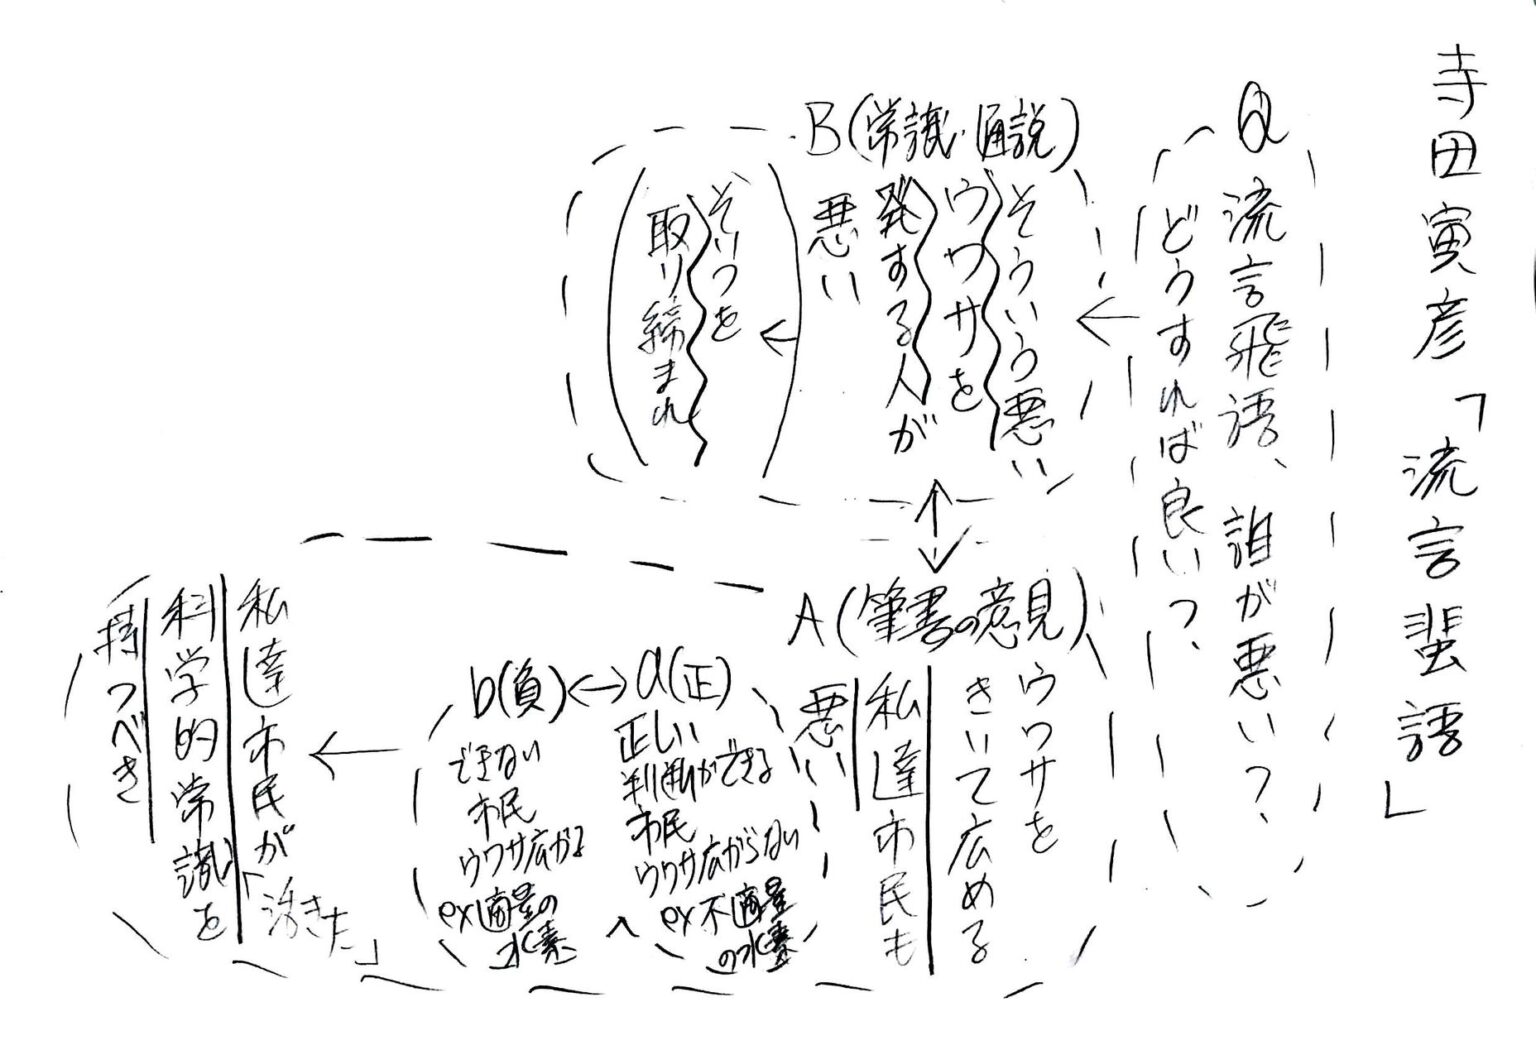 寺田寅彦「流言蜚語」
Q
流言飛語、誰が悪い?、
どうすれば良い?、
B(常識・通説)
そういう悪い
ウワサを
発する人が
悪い
そいつを
取り締まれ
A(筆者の意見)
ウワサを
きいて広める
私達市民も
悪い
a(正)
正しい
判断ができる
市民
ウワサ広がらない
ex不適量
の水素
b(負)
できない
市民
ウワサ広がる
ex適量の
水素
私達市民が
「活きた」
科学的常識を
持つべき